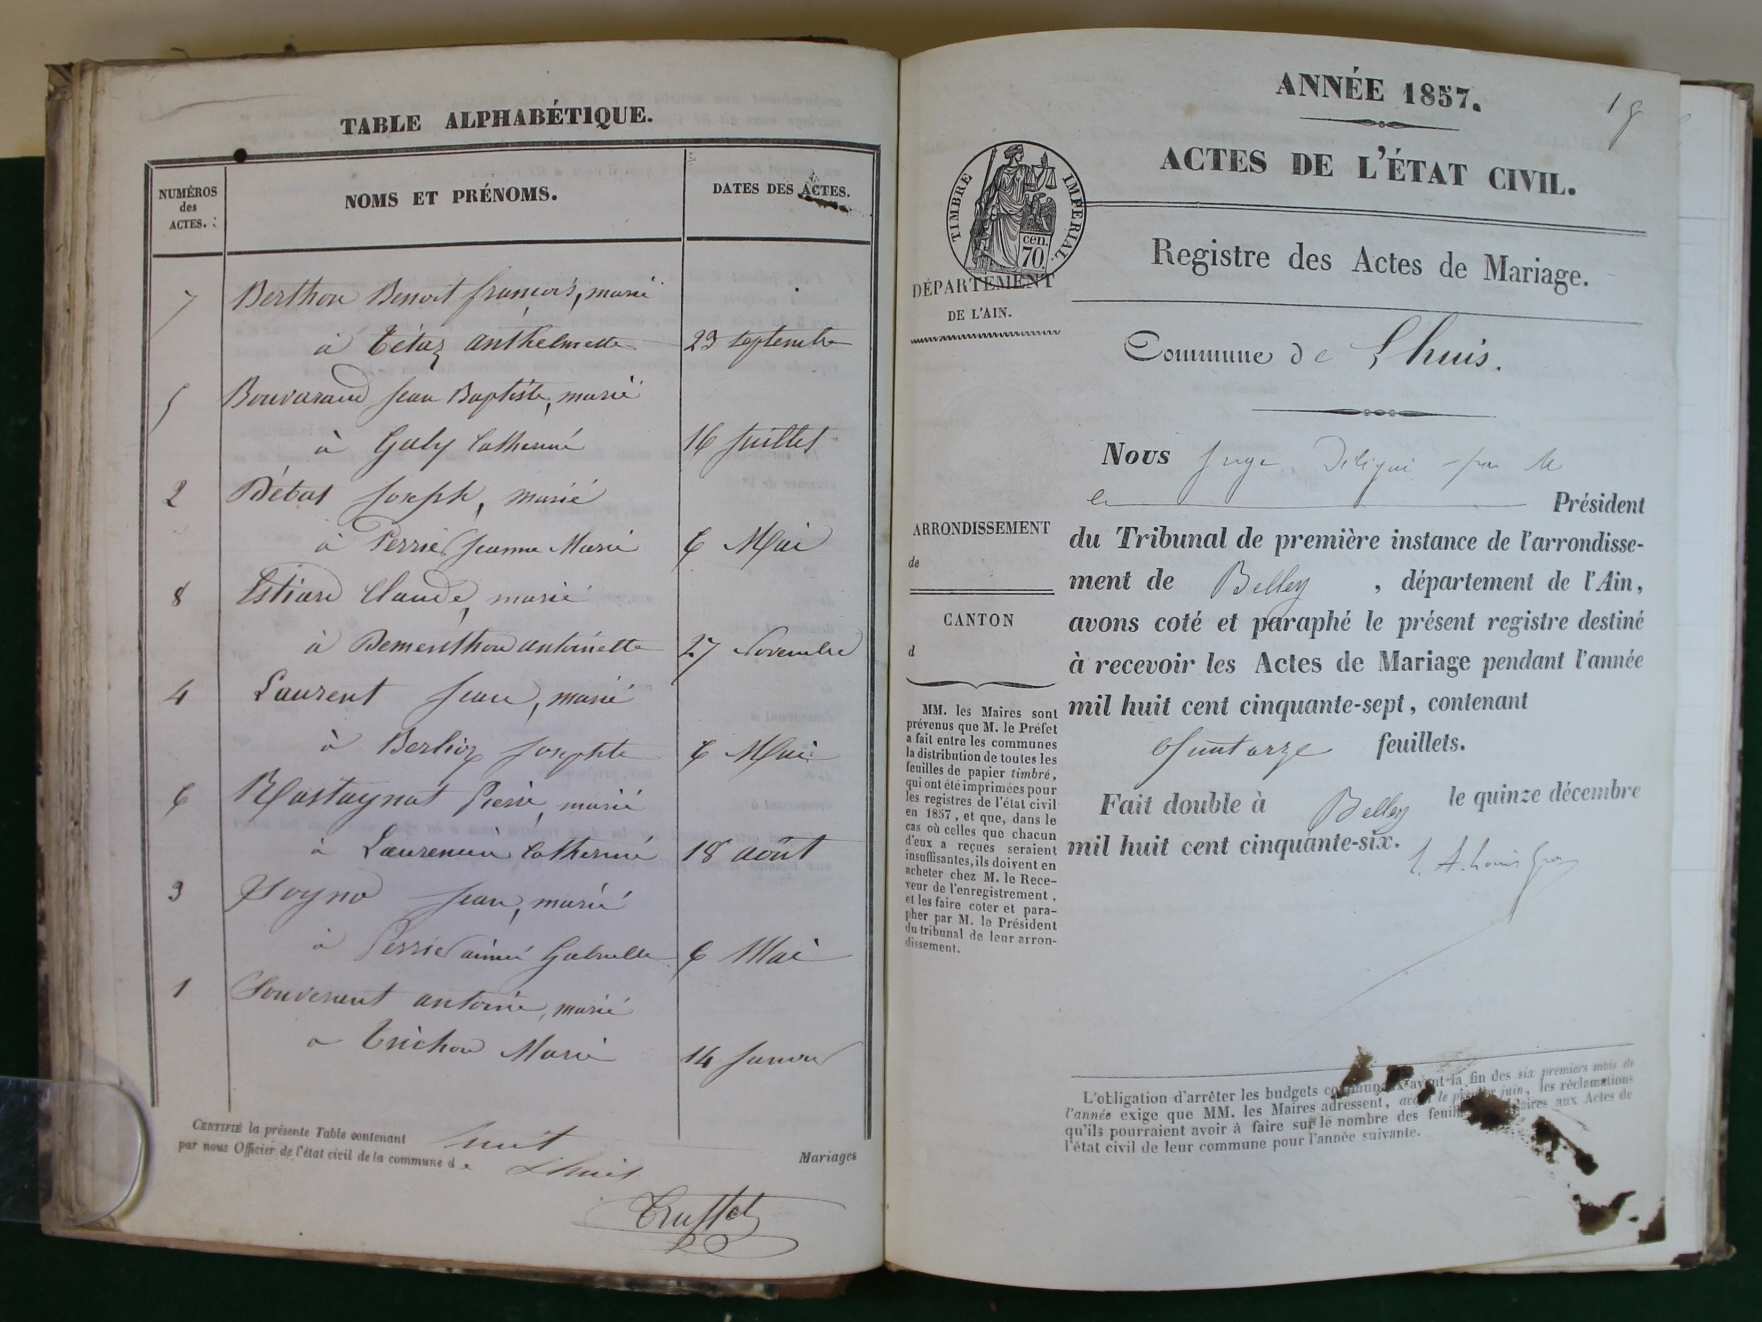 TABLE ALPHABÉTIQUE.
NUMÉROS
des
ACTES.
NOMS ET PRÉNOMS.
DATES DES ACTES.
7 Berthon Benoit françois, marié
à Tétaz anthelmette 23 septembre
5 Bouvarand Jean Baptiste, marié
à Galy Catherine 16 Juillet
2 Débat Joseph, marié
à Perrier Jeanne Marie 6 Mai
8 Estiard Claude, marié
à Dementhon antoinette 27 Novembre
4 Laurent Jean, marié
à Berlioz Josephte 6 Mai
6 Rostagnat Pierre, marié
à Laurencin Catherine 18 août
3 Soyno Jean, marié
à Perrier aimée Gabrielle 6 Mai
1 Souverant antoine, marié
à Trichon Marie 14 Janvier
CERTIFIÉ la présente Table contenant huit Mariages
par nous Officier de l'état civil de la commune de Lhuis
Trusset
ANNÉE 1857.
ACTES DE L'ÉTAT CIVIL.
TIMBRE IMPERIAL.
cen.
70
DÉPARTEMENT
DE L'AIN.
Registre des Actes de Mariage.
Commune de Lhuis.
ARRONDISSEMENT
de
CANTON
d
MM. les Maires sont
prévenus que M. le Préfet
a fait entre les communes
la distribution de toutes les
feuilles de papier timbré,
qui ont été imprimées pour
les registres de l'état civil
en 1857, et que, dans le
cas où celles que chacun
d'eux a reçues seraient
insuffisantes, ils doivent en
acheter chez M. le Rece-
veur de l'enregistrement,
et les faire coter et para-
pher par M. le Président
du tribunal de leur arron-
dissement.
Nous Juge Délégué par M
le Président
du Tribunal de première instance de l'arrondisse-
ment de Belley, département de l'Ain,
avons coté et paraphé le présent registre destiné
à recevoir les Actes de Mariage pendant l'année
mil huit cent cinquante-sept, contenant
feuillets.
Fait double à Belley le quinze décembre
mil huit cent cinquante-six.
L'obligation d'arrêter les budgets communaux avant la fin des six premiers mois de
l'année exige que MM. les Maires adressent, avant le premier juin, les réclamations
qu'ils pourraient avoir à faire sur le nombre des feuilles aux Actes de
l'état civil de leur commune pour l'année suivante.